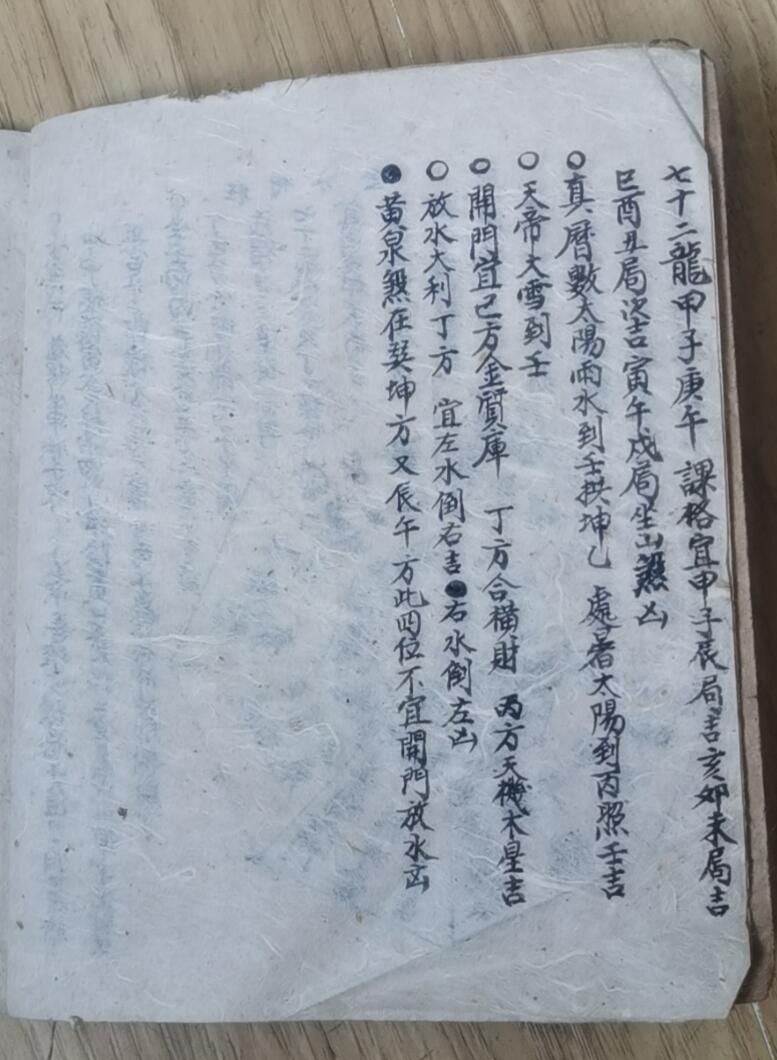 七十二龍甲子庚午　課格宜申子辰局吉亥卯未局吉
巳酉丑局次吉寅午戍局坐山煞凶
○真曆數太陽雨水到壬拱坤乙　處暑太陽到丙照壬吉
○天帝大雪到壬
○開門宜巳方金質庫　丁方合橫財　丙方天機木星吉
○放水大利丁方　宜左水倒右吉●右水倒左凶
●黃泉煞在癸坤方又辰午方此四位不宜開門放水凶